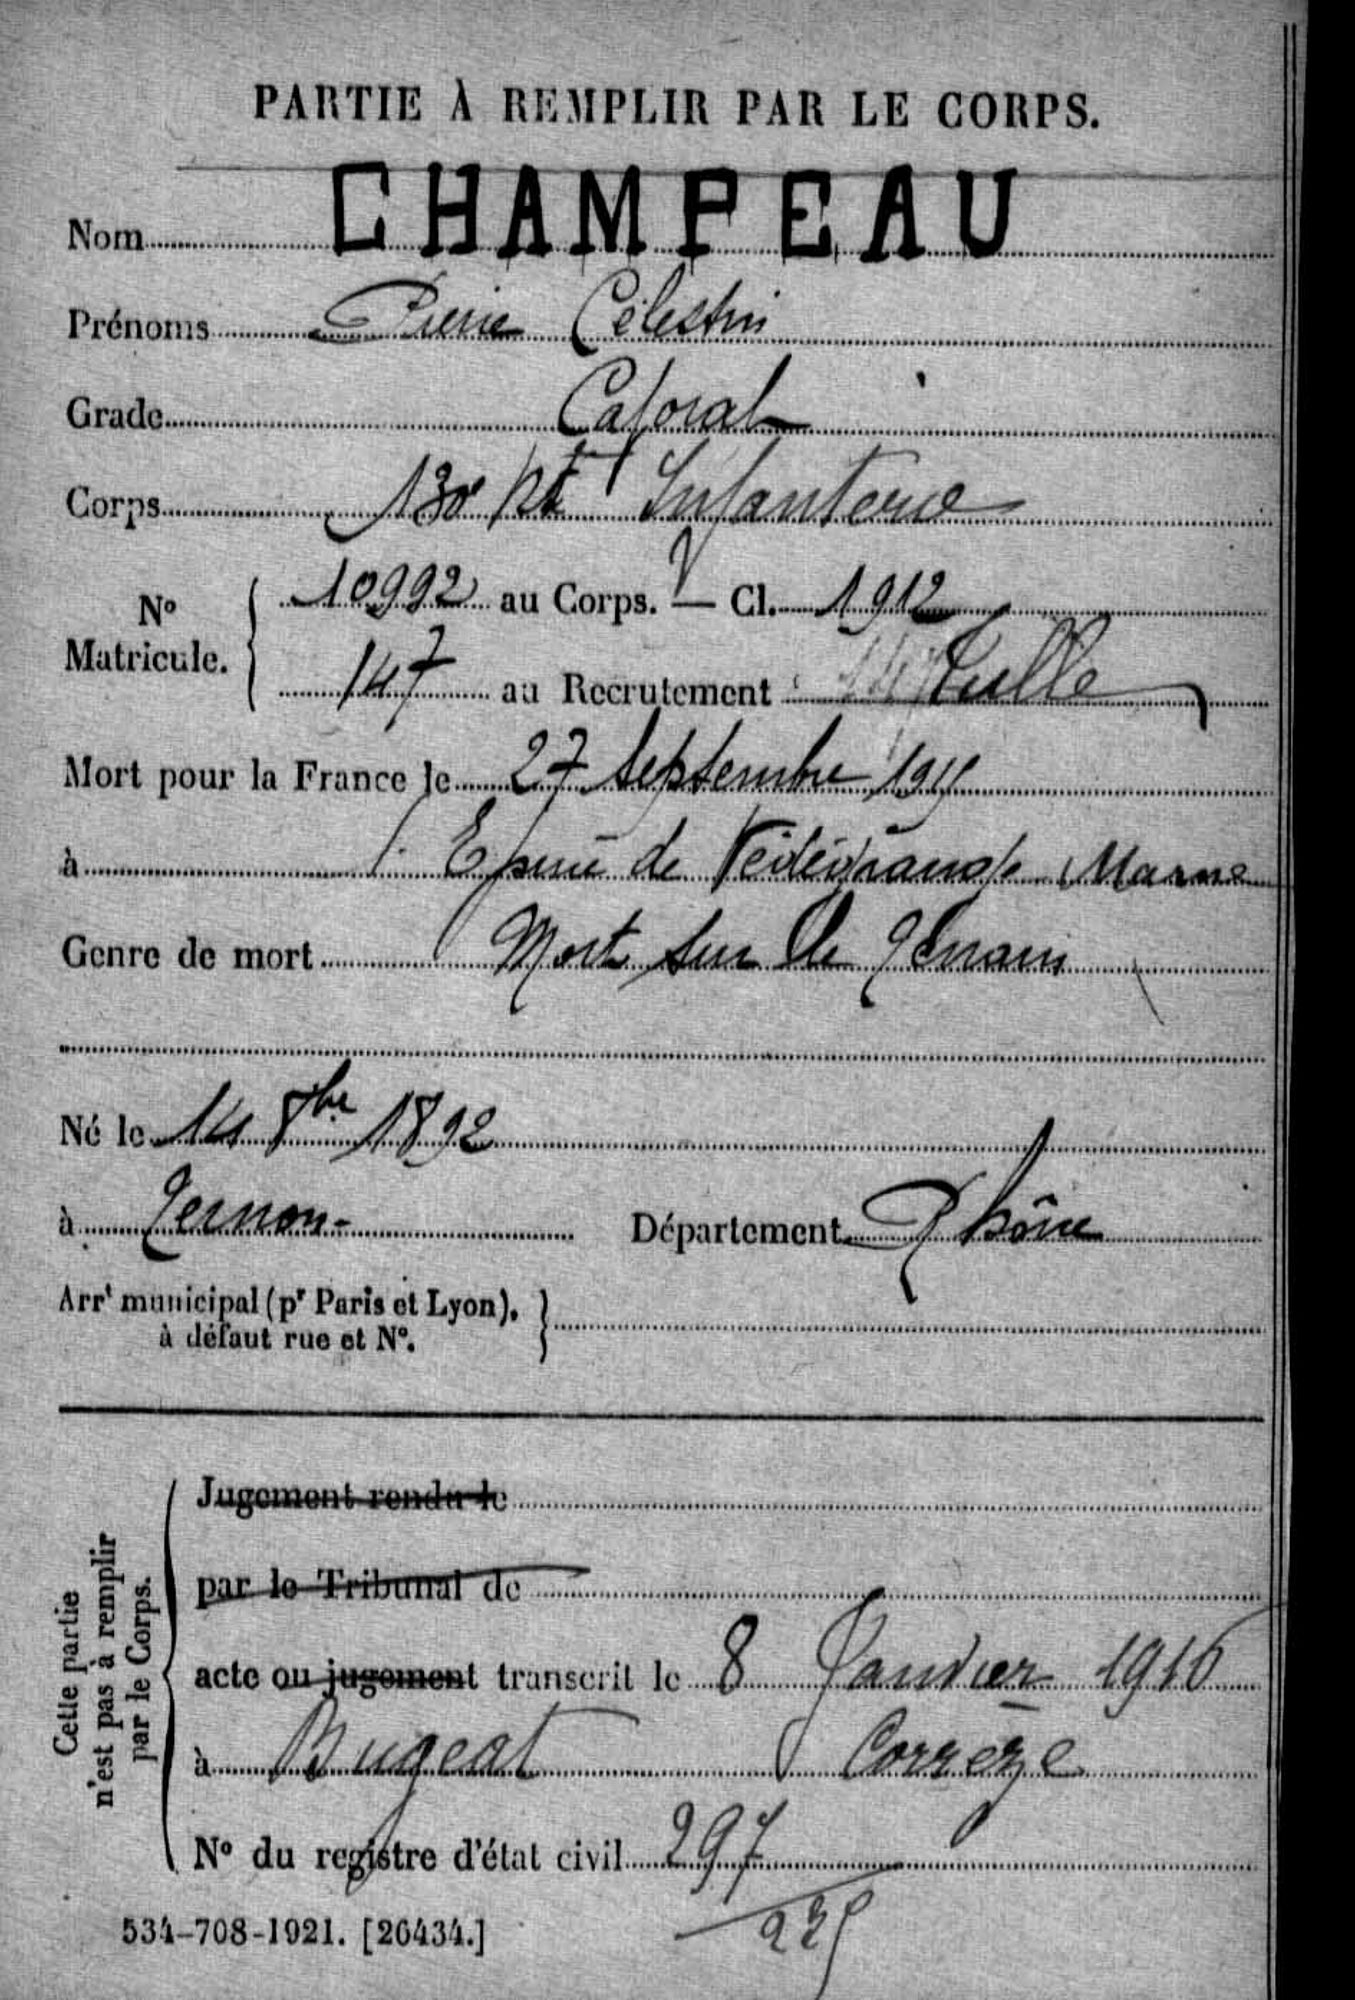 PARTIE À REMPLIR PAR LE CORPS.
Nom CHAMPEAU
Prénoms Pierre Célestin
Grade Caporal
Corps 130e Rt Infanterie
No Matricule. { 10992 au Corps. — Cl. 1912
147 au Recrutement Tulle
Mort pour la France le 27 Septembre 1915
à l'Epine de Marne
Genre de mort Mort sur le terrain
Né le 14 8bre 1892
à Ternon Département Rhône
Arrt municipal (pr Paris et Lyon), }
à défaut rue et No.
Cette partie
n'est pas à remplir
par le Corps.
Jugement rendu le
par le Tribunal de
acte ou jugement transcrit le 8 Janvier 1916
à Bugeat Corrèze
No du registre d'état civil 297
225
534-708-1921. [26434.]